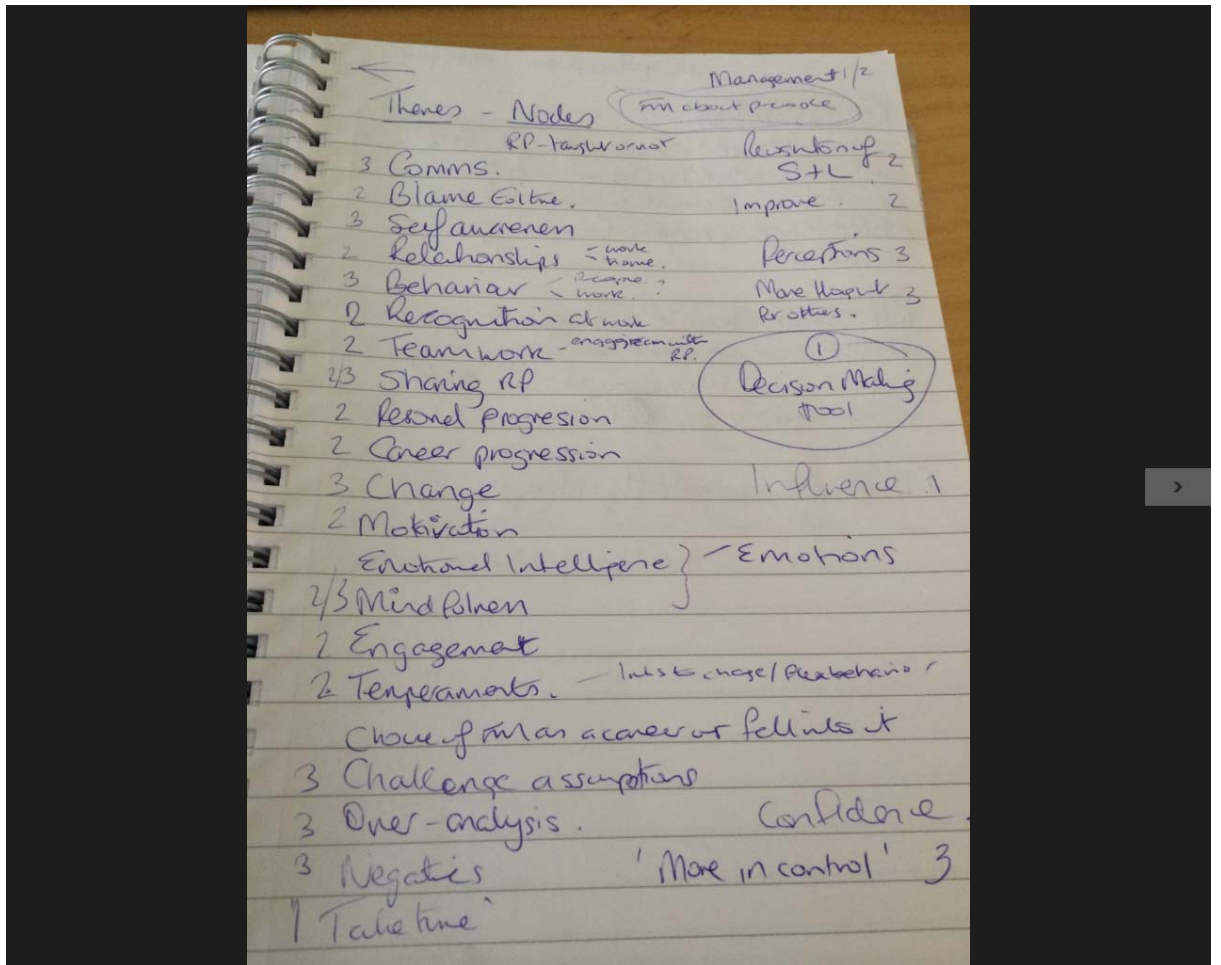 Management 1/2
Themes - Nodes
FM about people
RP - taught or not
3 Comms.
S+L 2
2 Blame Culture.
Improve. 2
3 Self awareness
2 Relationships - work - home.
Perceptions 3
3 Behaviour - work
More 3
for others.
2 Recognition at work
2 Teamwork - engage team with RP.
1
Decision Making
tool
2/3 Sharing RP
2 Personal progression
2 Career progression
3 Change
Influence 1
2 Motivation
Emotional Intelligence } - Emotions
2/3 Mindfulness
2 Engagement
2 Temperaments. - links to change / flex behaviour
Choice of FM as a career or fell into it
3 Challenge assumptions
3 Over-analysis.
Confidence.
3 Negatives
'More in control' 3
1 Take time